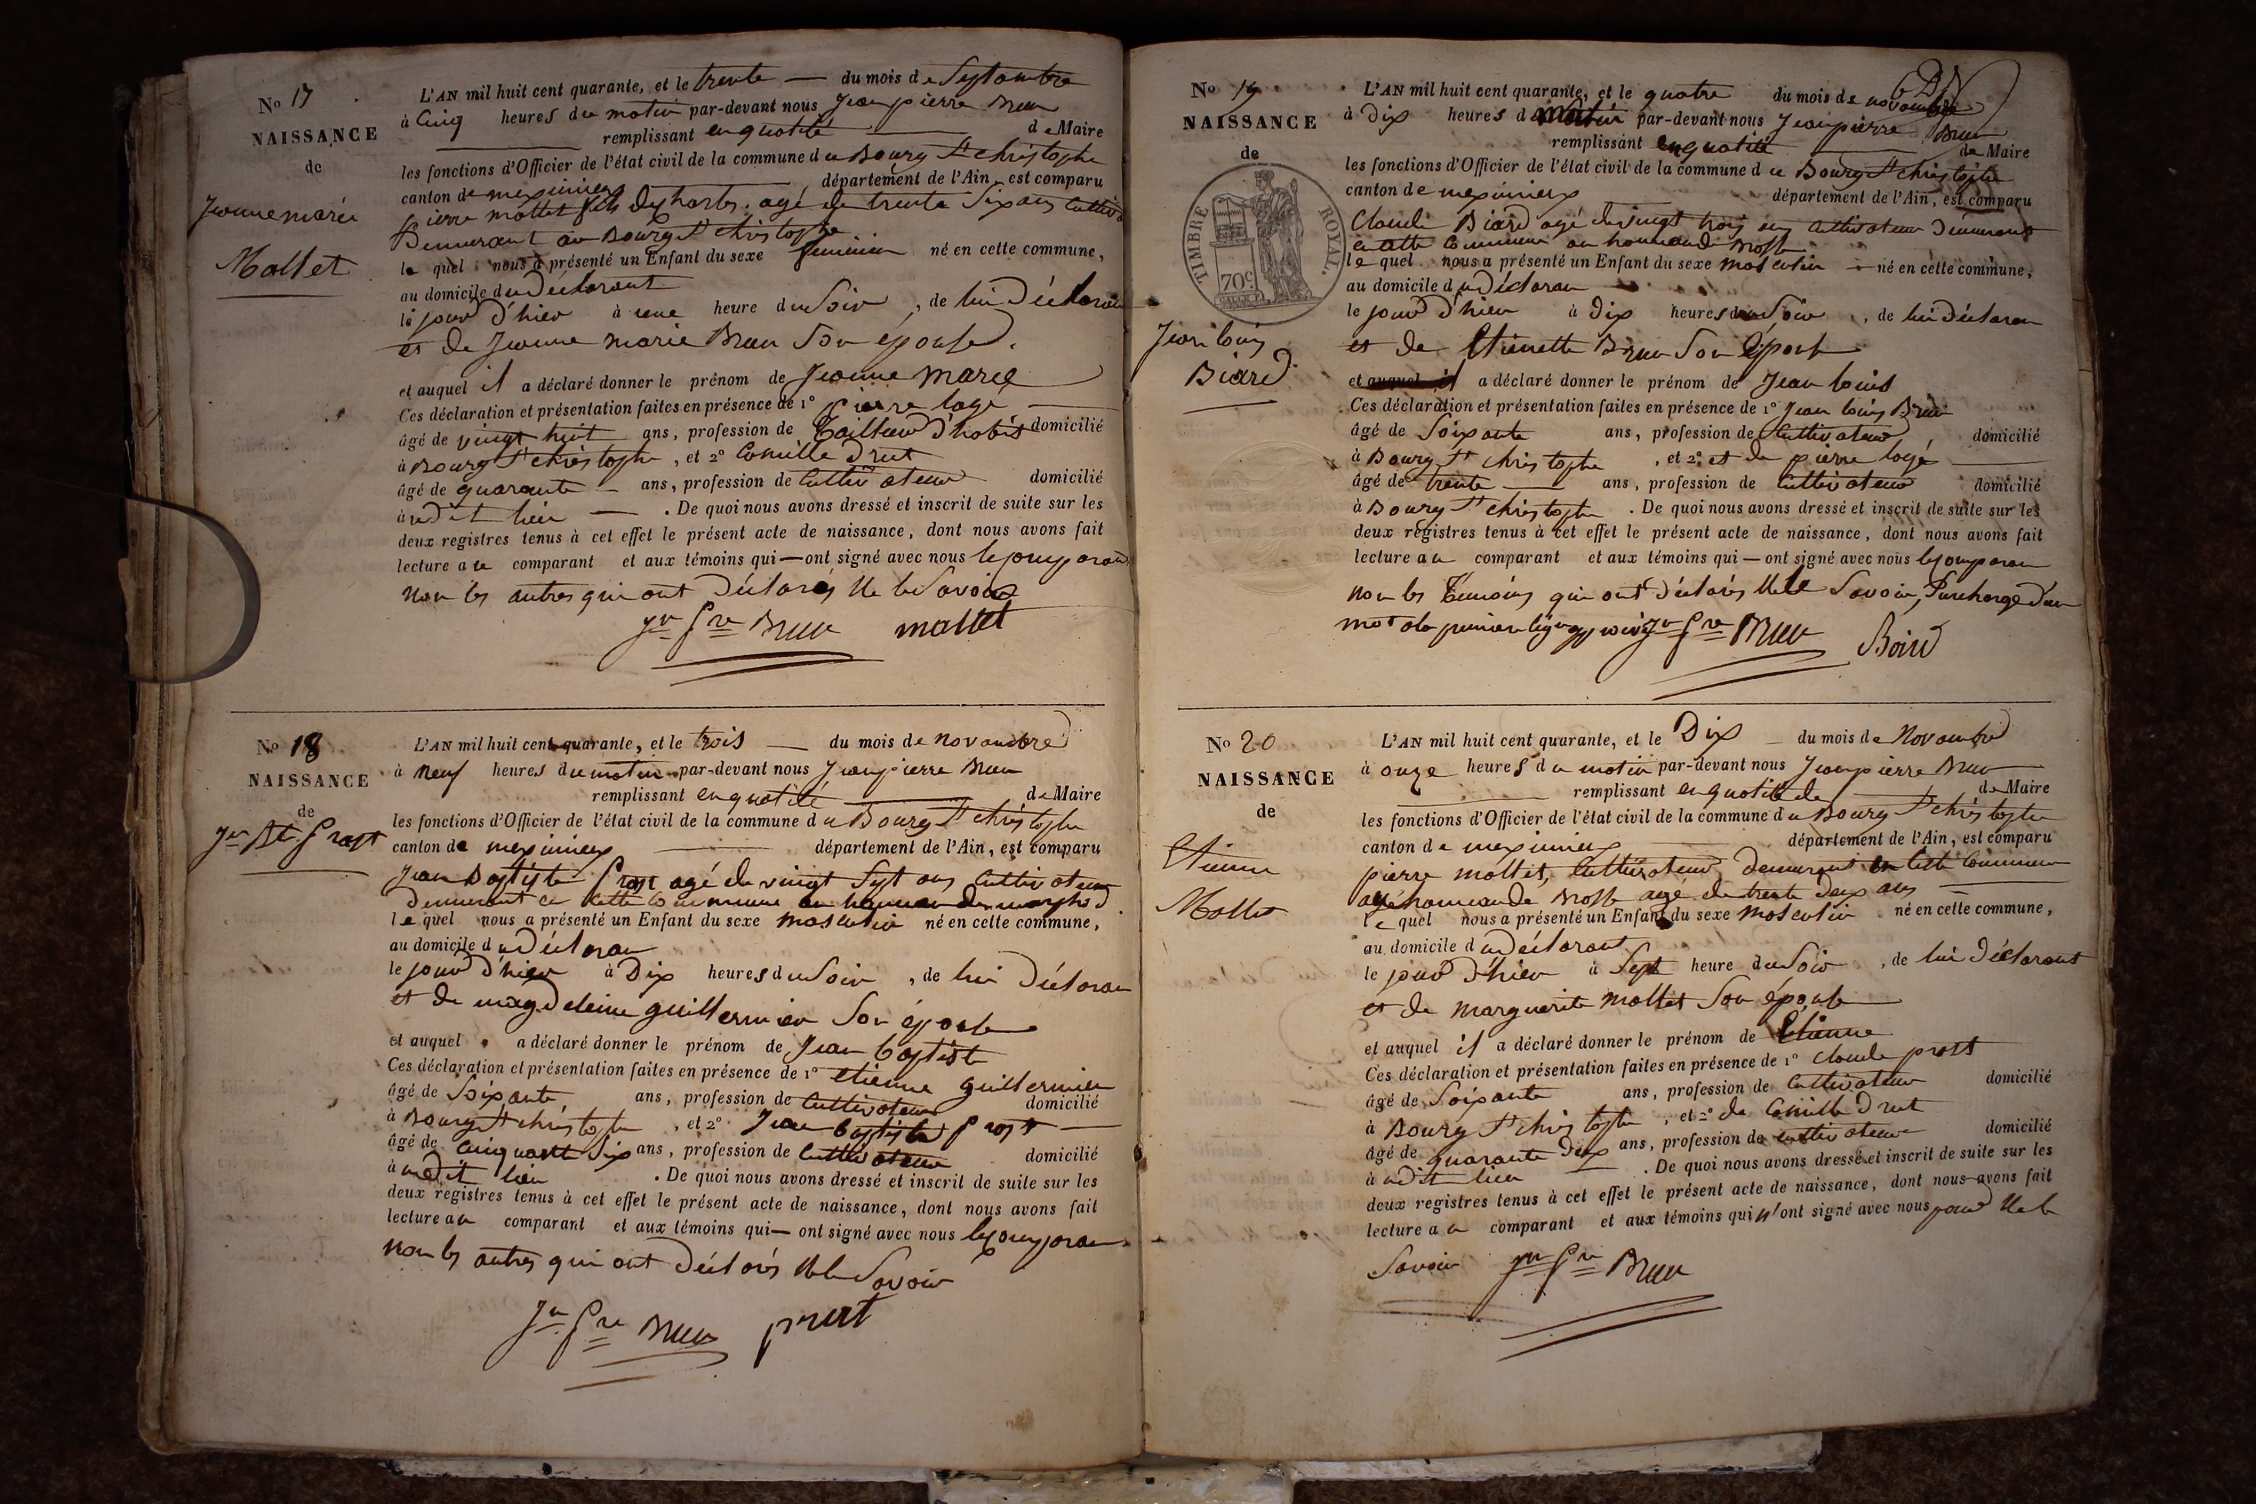 No 17
NAISSANCE
de
Jeanne marie
Mollet
L'AN mil huit cent quarante, et le trente — du mois de Septambre
à Cinq heures du matin par-devant nous Jean pierre Brun
remplissant en qualité de Maire
les fonctions d'Officier de l'état civil de la commune du Bourg St christophe
canton de meximieux département de l'Ain, est comparu
pierre mollet fils agé de trente Six ans Cultiv
Demeurant au Bourg St christophe
le quel nous a présenté un Enfant du sexe feminin né en cette commune,
au domicile du Déclarant
le jour d'hier à une heure du Soir, de lui Déclaran
et de Jeanne marie Brun Son épouse.
et auquel il a déclaré donner le prénom de Jeanne marie
Ces déclaration et présentation faites en présence de 1° pierre logé
âgé de vingt huit ans, profession de Tailleur d'habis domicilié
à Bourg St christophe, et 2° Camille Drut
âgé de quarante — ans, profession de Cultivateur domicilié
à udit lieu — . De quoi nous avons dressé et inscrit de suite sur les
deux registres tenus à cet effet le présent acte de naissance, dont nous avons fait
lecture au comparant et aux témoins qui — ont signé avec nous le comparan
non les autres qui ont Déclarés Ne le Savoir
Jn Pre Brun mollet
No 18
NAISSANCE
de
Jn Bte Prost
L'AN mil huit cent quarante, et le trois — du mois de novambre
à neuf heures du matin par-devant nous Jean pierre Brun
remplissant en qualité de Maire
les fonctions d'Officier de l'état civil de la commune du Bourg St christophe
canton de meximieux département de l'Ain, est comparu
Jean Baptiste Prost agé de vingt Sept ans Cultivateur
Demeurant en cette commune au hameau de
le quel nous a présenté un Enfant du sexe masculin né en cette commune,
au domicile du Déclaran
le jour d'hier à Dix heures du Soir, de lui Déclaran
et de magdeleine guillermier Son épouse
et auquel a déclaré donner le prénom de Jean baptist
Ces déclaration et présentation faites en présence de 1° etienne guillermier
âgé de Soixante ans, profession de Cultivateur domicilié
à Bourg St christophe, et 2° Jean baptiste Prost —
âgé de cinquante Six ans, profession de Cultivateur domicilié
à udit lieu . De quoi nous avons dressé et inscrit de suite sur les
deux registres tenus à cet effet le présent acte de naissance, dont nous avons fait
lecture au comparant et aux témoins qui — ont signé avec nous le comparan
non les autres qui ont Déclarés Ne le Savoir
Jn Pre Brun prost
No 19
NAISSANCE
de
TIMBRE ROYAL.
70c
Jean louis
Biard
L'AN mil huit cent quarante, et le quatre du mois de novambre
à Dix heures du matin par-devant nous Jean pierre Brun
remplissant en qualité de Maire
les fonctions d'Officier de l'état civil de la commune du Bourg St christophe
canton de meximieux département de l'Ain, est comparu
Claude Biard agé de vingt trois ans Cultivateur Demeurant
en cette commune au hameau de
le quel nous a présenté un Enfant du sexe masculin né en cette commune,
au domicile du Déclaran
le jour d'hier à Dix heures du Soir, de lui Déclaran
et de Etienette Brun Son épouse
et auquel il a déclaré donner le prénom de Jean louis
Ces déclaration et présentation faites en présence de 1° Jean louis Brun
âgé de Soixante ans, profession de Cultivateur domicilié
à Bourg St christophe, et 2° et de pierre logé
âgé de trente — ans, profession de Cultivateur domicilié
à Bourg St christophe . De quoi nous avons dressé et inscrit de suite sur les
deux registres tenus à cet effet le présent acte de naissance, dont nous avons fait
lecture au comparant et aux témoins qui — ont signé avec nous le comparan
non les Temoins qui ont Déclarés Ne le Savoir, Surcharge d'un
mot à la premier ligne Jn Pre Brun Boird
No 20
NAISSANCE
de
Etienne
Mollet
L'AN mil huit cent quarante, et le Dix — du mois de Novambre
à onze heures du matin par-devant nous Jean pierre Brun
remplissant en qualité de de Maire
les fonctions d'Officier de l'état civil de la commune du Bourg St christophe
canton de meximieux département de l'Ain, est comparu
pierre mollet, Cultivateur Demeurant en cette Commune
hameau de agé de trente Deux ans
le quel nous a présenté un Enfant du sexe masculin né en cette commune,
au domicile du déclarant
le jour d'hier à Sept heure du Soir, de lui Déclarant
et de marguerite mollet Son épouse
et auquel il a déclaré donner le prénom de Etienne
Ces déclaration et présentation faites en présence de 1° Claude prost
âgé de Soixante ans, profession de Cultivateur domicilié
à Bourg St christophe, et 2° de Camille Drut
âgé de quarante Deux ans, profession de cultivateur domicilié
à udit lieu . De quoi nous avons dressé et inscrit de suite sur les
deux registres tenus à cet effet le présent acte de naissance, dont nous avons fait
lecture au comparant et aux témoins qui n'ont signé avec nous pour Ne le
Savoir Jn Pre Brun